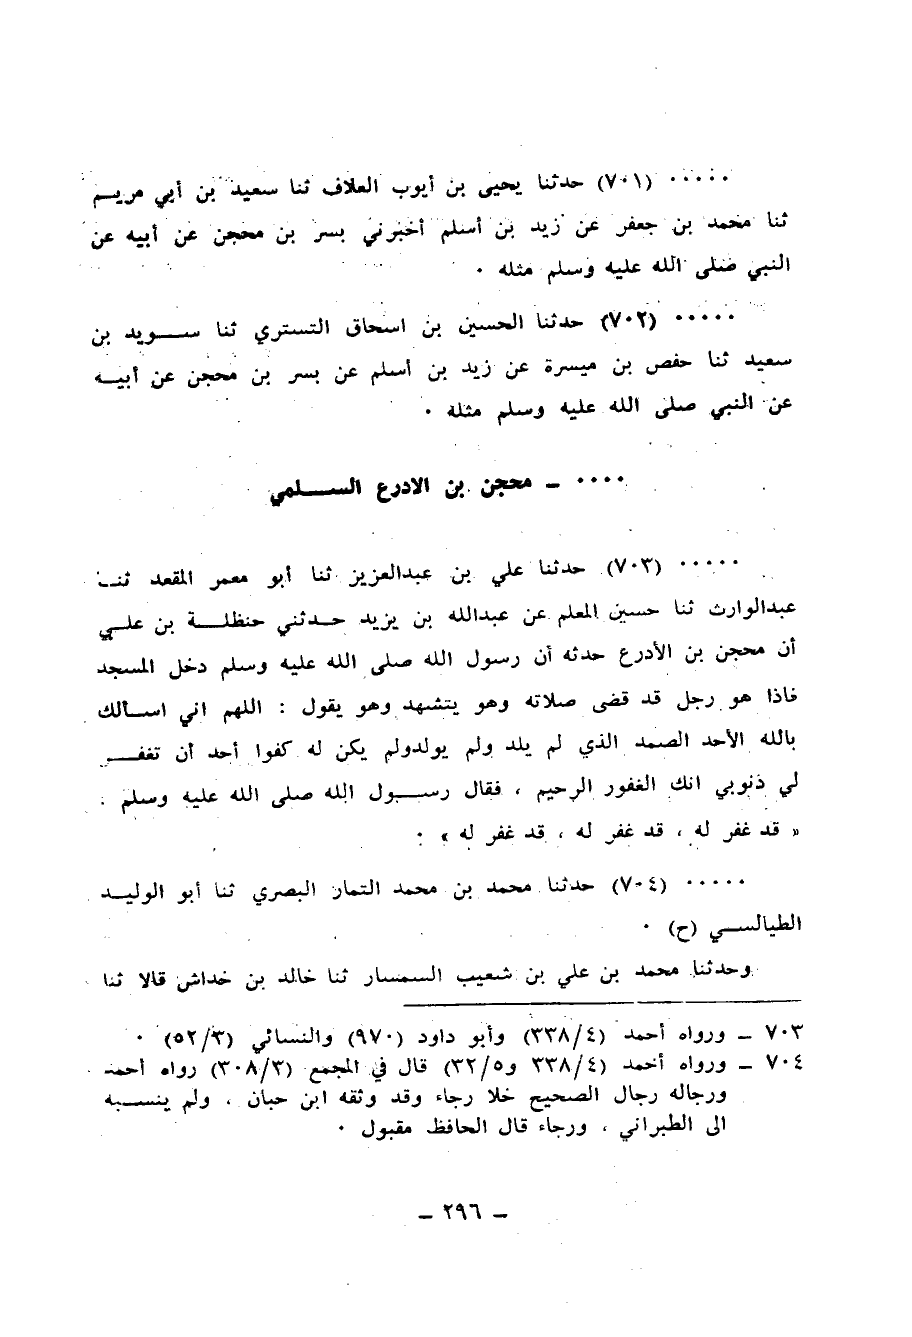 ٠٠٠٠٠ (٧٠١) حدثنا يحيى بن أيوب العلاف ثنا سعيد بن أبي مريم
ثنا محمد بن جعفر عن زيد بن أسلم أخبرني بسر بن محجن عن أبيه عن
النبي صلى الله عليه وسلم مثله ٠
٠٠٠٠٠ (٧٠٢) حدثنا الحسين بن اسحاق التستري ثنا سويد بن
سعيد ثنا حفص بن ميسرة عن زيد بن أسلم عن بسر بن محجن عن أبيه
عن النبي صلى الله عليه وسلم مثله ٠
٠٠٠٠ ــ محجن بن الادرع السلمي
٠٠٠٠٠ (٧٠٣) حدثنا علي بن عبدالعزيز ثنا أبو معمر المقعد ثنا
عبدالوارث ثنا حسين المعلم عن عبدالله بن يزيد حدثني حنظلة بن علي
أن محجن بن الأدرع حدثه أن رسول الله صلى الله عليه وسلم دخل المسجد
فاذا هو رجل قد قضى صلاته وهو يتشهد وهو يقول : اللهم اني اسألك
بالله الأحد الصمد الذي لم يلد ولم يولدولم يكن له كفوا أحد أن تغفر
لي ذنوبي انك الغفور الرحيم ، فقال رسول الله صلى الله عليه وسلم :
« قد غفر له ، قد غفر له ، قد غفر له » ٠
٠٠٠٠٠ (٧٠٤) حدثنا محمد بن محمد التمار البصري ثنا أبو الوليد
الطيالسي (ح) ٠
وحدثنا محمد بن علي بن شعيب السمسار ثنا خالد بن خداش قالا ثنا
٧٠٣ ــ ورواه أحمد (٣٣٨/٤) وأبو داود (٩٧٠) والنسائي (٥٢/٣) ٠
٧٠٤ ــ ورواه أحمد (٣٣٨/٤ و٣٢/٥) قال في المجمع (٣٠٨/٣) رواه أحمد
ورجاله رجال الصحيح خلا رجاء وقد وثقه ابن حبان ، ولم ينسبه
الى الطبراني ، ورجاء قال الحافظ مقبول ٠
ــ ٢٩٦ ــ